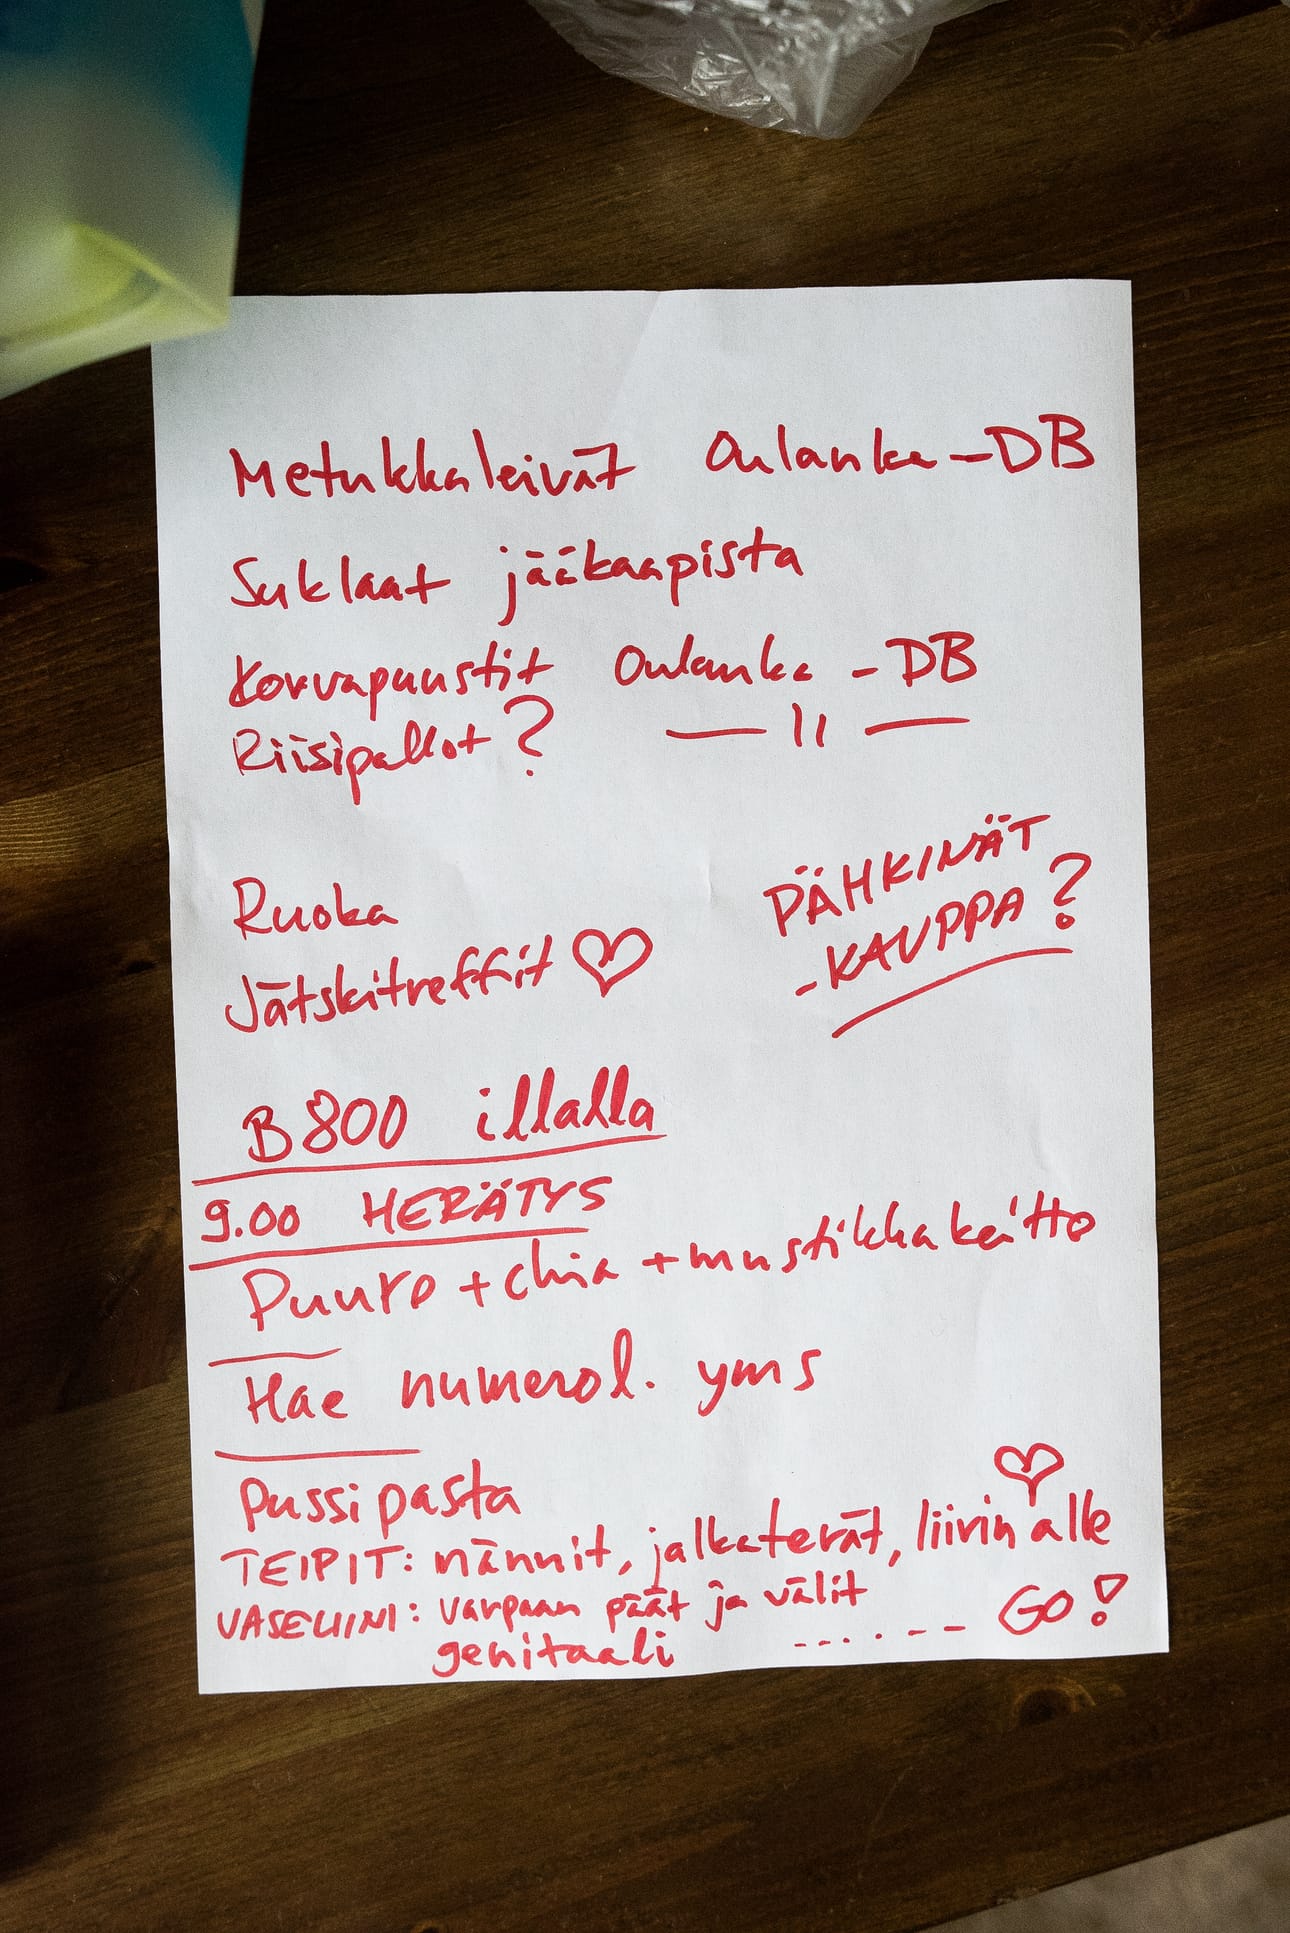 Metukkaleivät Oulanka-DB
Suklaat jääkaapista
Korvapuustit Oulanka -DB
Riisipallot? — 11 —
PÄHKINÄT
-KAUPPA?
Ruoka
Jätskitreffit ♡
B800 illalla
9.00 HERÄTYS
Puuro + chia + mustikkakeitto
Hae numerol. yms
Pussipasta
TEIPIT: nännit, jalkaterät, liivin alle ♡
VASELIINI: varpaan päät ja välit
genitaali ...... GO!